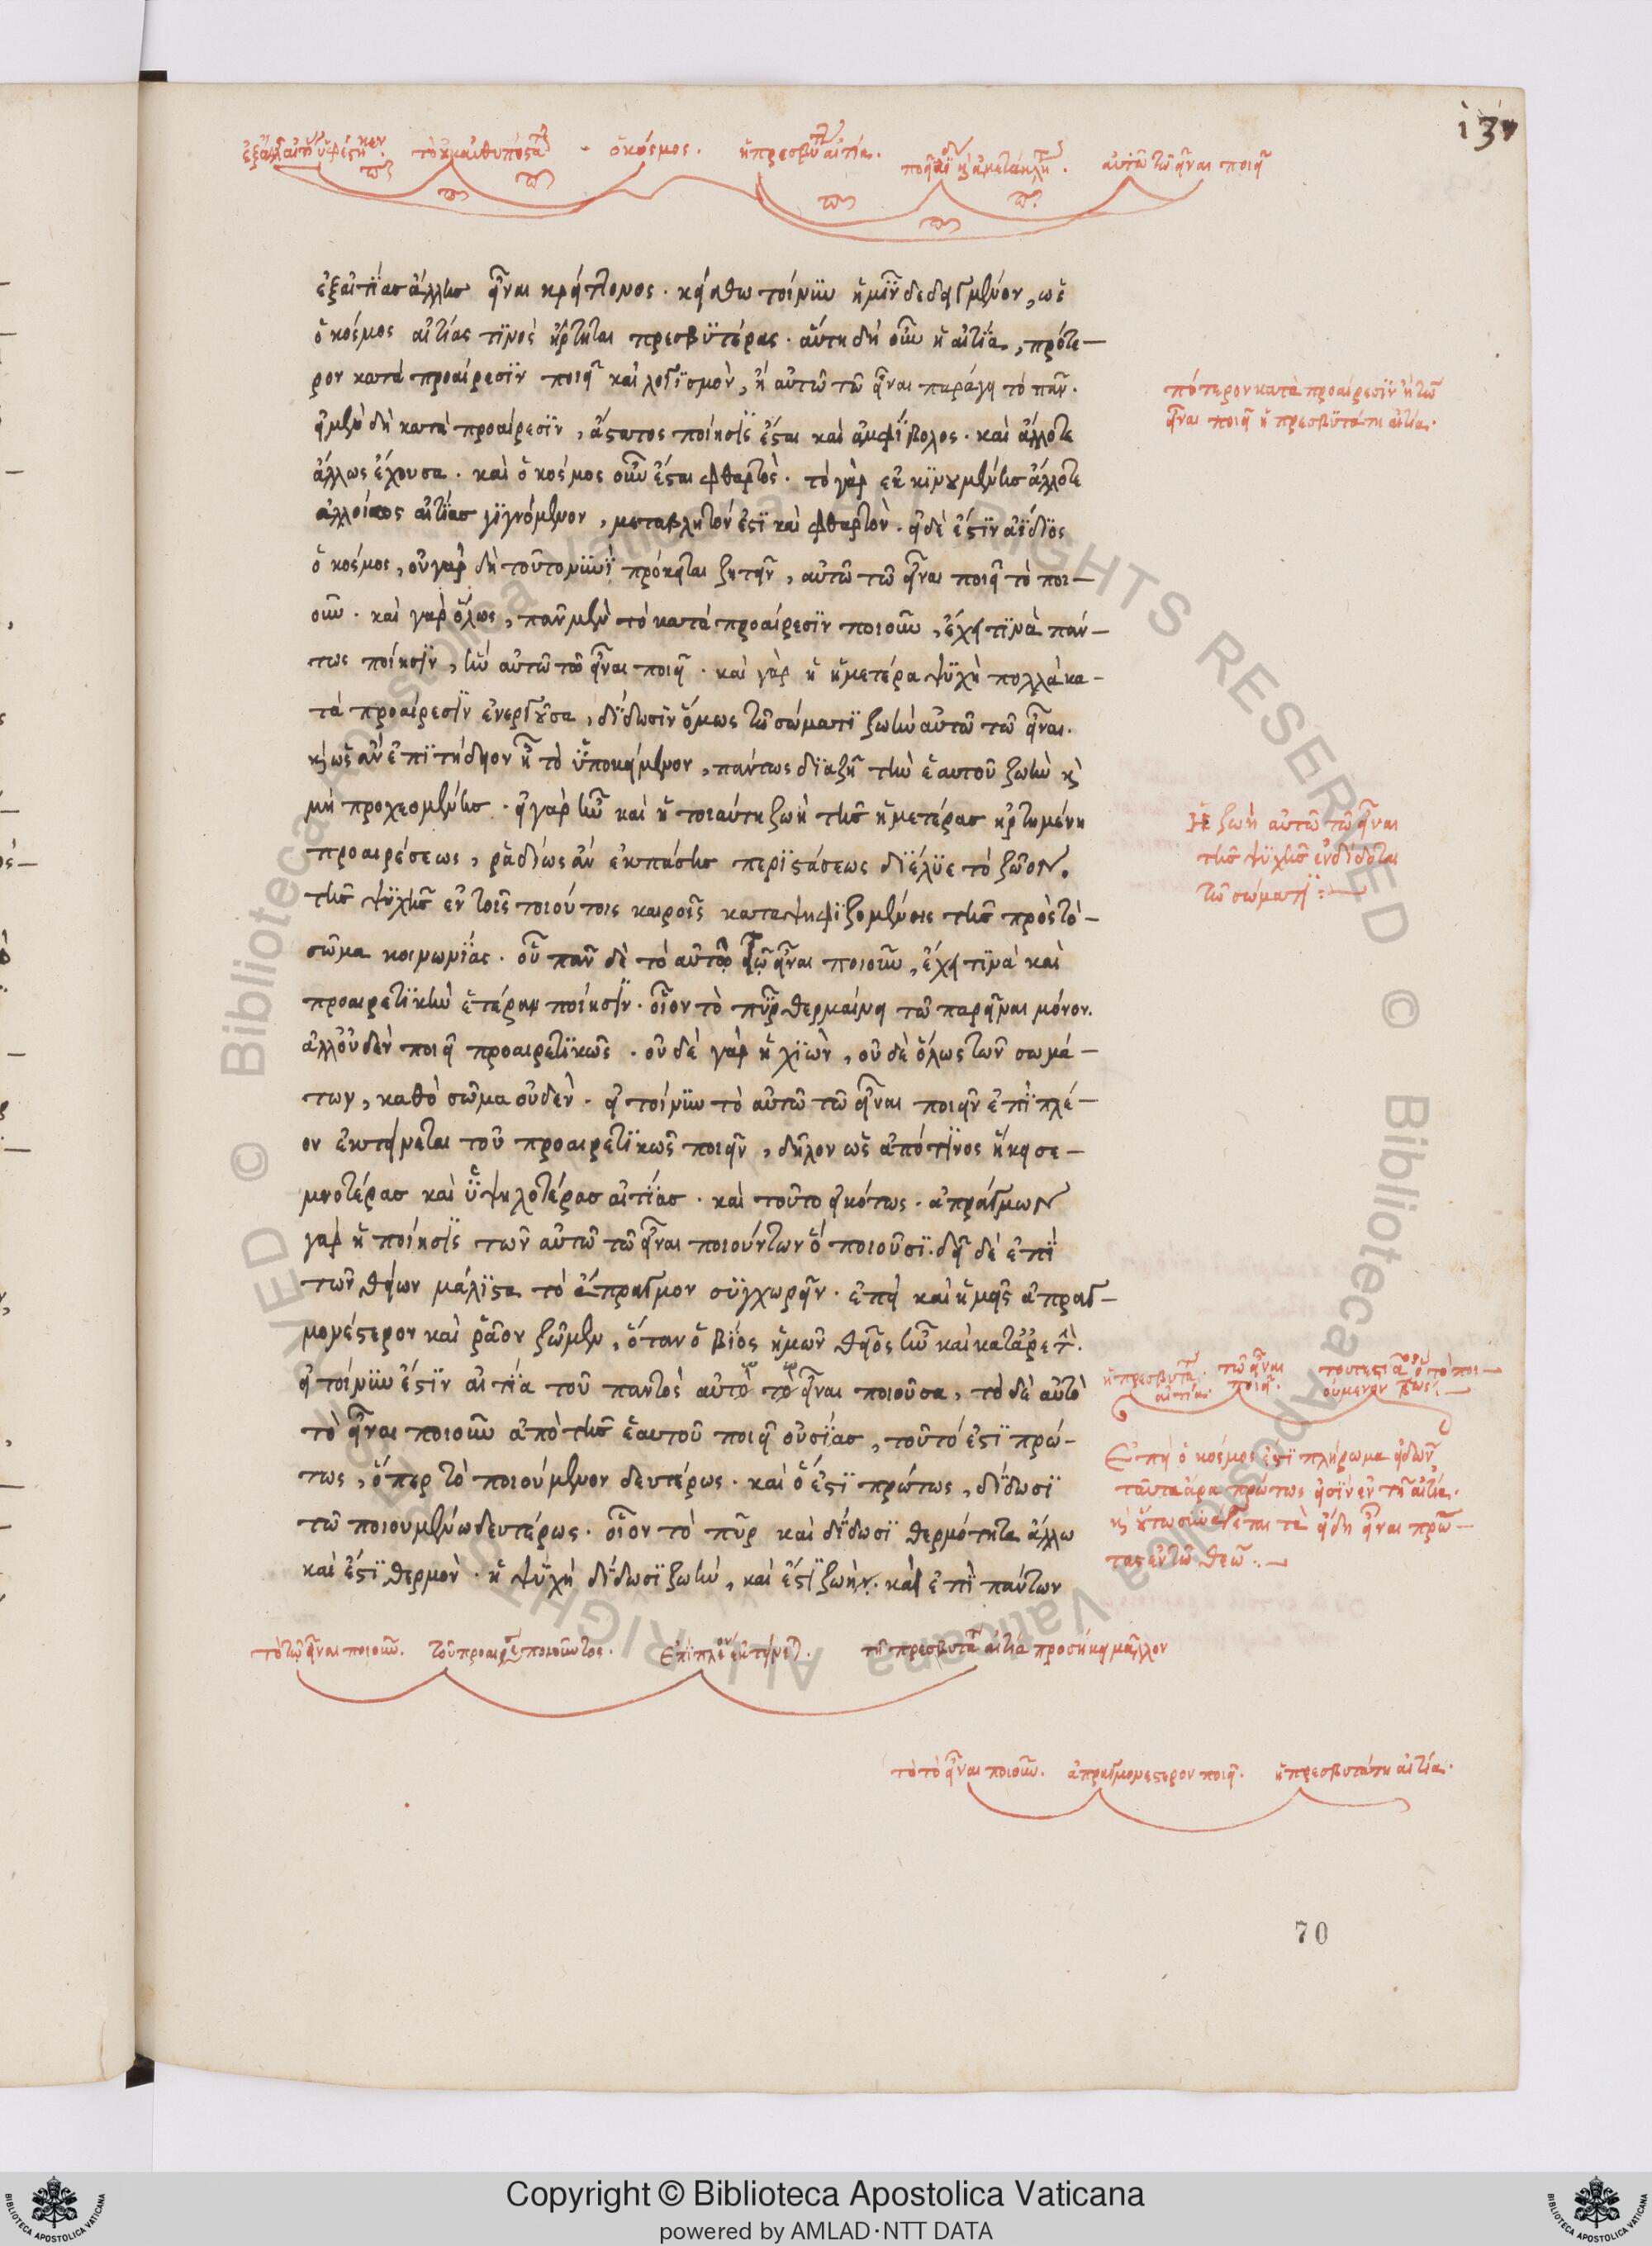 137
ὁ κόσμος. ἡ πρεσβυτ αἰτία.
αὐτῶ τῶ εἶναι ποιεῖ
ἐξ αἰτίας ἄλλης εἶναι κρείττονος. κείσθω τοίνυν ἡμῖν δεδειγμένον, ὡς
ὁ κόσμος αἰτίας τινὸς ἤρτηται πρεσβυτέρας. αὕτη δὴ οὖν ἡ αἰτία, πρότε-
ρον κατὰ προαίρεσιν ποιεῖ καὶ λογισμὸν, ἢ αὐτῶ τῶ εἶναι παράγει τὸ πᾶν.
εἰ μὲν δὴ κατὰ προαίρεσιν, ἄστατος ποίησις ἔσται καὶ ἀμφίβολος. καὶ ἄλλοτε
ἄλλως ἔχουσα. καὶ ὁ κόσμος οὖν ἔσται φθαρτὸς. τὸ γὰρ ἐκ κινουμένης ἄλλοτε
ἀλλοίως αἰτίας γιγνόμενον, μεταβλητόν ἐστι καὶ φθαρτὸν. εἰ δὲ ἐστὶν ἀΐδιος
ὁ κόσμος, οὐ γὰρ δὴ τοῦτο νυνὶ πρόκειται ζητεῖν, αὐτῶ τῶ εἶναι ποιεῖ τὸ ποι-
οῦν. καὶ γὰρ ὅλως, πᾶν μὲν τὸ κατὰ προαίρεσιν ποιοῦν, ἔχει τινὰ πάν-
τως ποίησιν, ἣν αὐτῶ τῶ εἶναι ποιεῖ. καὶ γὰρ ἡ ἡμετέρα ψυχὴ πολλὰ κα-
τὰ προαίρεσιν ἐνεργοῦσα, δίδωσιν ὅμως τῶ σώματι ζωὴν αὐτῶ τῶ εἶναι.
κὶ ὡς ἂν ἐπιτήδειον ἦ τὸ ὑποκείμενον, πάντως διαζῆ τὴν ἑαυτοῦ ζωὴν κὶ
μὴ προχεομένης. εἰ γὰρ ἦν καὶ ἡ τοιαύτη ζωὴ τῆς ἡμετέρας ἠρτημένη
προαιρέσεως, ῥαδίως ἂν ἐκ πάσης περιστάσεως διέλυε τὸ ζῶον.
τῆς ψυχῆς ἐν τοῖς τοιούτοις καιροῖς καταψηφιζομένης τῆς πρὸς τὸ-
σῶμα κοινωνίας. οὐ πᾶν δὲ τὸ αὐτῶ τῶ εἶναι ποιοῦν, ἔχει τινὰ καὶ
προαιρετικὴν ἑτέραν ποίησιν. οἷον τὸ πῦρ θερμαίνει τῶ παρεῖναι μόνον.
ἀλλ' οὐδὲν ποιεῖ προαιρετικῶς. οὐδὲ γὰρ ἡ χιὼν, οὐδὲ ὅλως τῶν σωμά-
των, καθὸ σῶμα οὐδὲν. εἰ τοίνυν τὸ αὐτῶ τῶ εἶναι ποιεῖν ἐπὶ πλέ-
ον ἐκτείνεται τοῦ προαιρετικῶς ποιεῖν, δῆλον ὡς ἀπό τινος ἥκει σε-
μνοτέρας καὶ ὑψηλοτέρας αἰτίας. καὶ τοῦτο εἰκότως. ἀπράγμων
γὰρ ἡ ποίησις τῶν αὐτῶ τῶ εἶναι ποιούντων ὃ ποιοῦσι. δεῖ δὲ ἐπὶ
τῶν θείων μάλιστα τὸ ἄπραγμον συγχωρεῖν. ἐπεὶ καὶ ἡμεῖς ἀπραγ-
μονέστερον καὶ ῥᾶον ζῶμεν, ὅταν ὁ βίος ἡμῶν θεῖος ἦν καὶ κατ' ἀρετ.
εἰ τοίνυν ἐστὶν αἰτία τοῦ παντὸς αὐτὸ τὸ εἶναι ποιοῦσα, τὸ δὲ αὐτὸ
τὸ εἶναι ποιοῦν ἀπὸ τῆς ἑαυτοῦ ποιεῖ οὐσίας, τοῦτό ἐστι πρώ-
τως, ὅπερ τὸ ποιούμενον δευτέρως. καὶ ὅ ἐστι πρώτως, δίδωσι
τῶ ποιουμένω δευτέρως. οἷον τὸ πῦρ καὶ δίδωσι θερμότητα ἄλλω
καὶ ἔστι θερμὸν. ἡ ψυχὴ δίδωσι ζωὴν, καὶ ἔστι ζωὴν. καὶ ἐπὶ πάντων
πότερον κατὰ προαίρεσιν ἢ τῶ
εἶναι ποιεῖ ἡ πρεσβυτάτη αἰτία.
Ἡ ζωὴ αὐτῶ τῶ εἶναι
τῆς ψυχῆς ἐνδίδοται
τῶ σώματι:
ἡ πρεσβυτ αἰτία. τῶ εἶναι ποιεῖ.
Ἐπεὶ ὁ κόσμος ἐστὶ πλήρωμα εἰδῶν,
ταῦτα ἄρα πρώτως εἰσὶν ἐν τῆ αἰτία.
κὶ οὕτω συνάγεται τὰ εἴδη εἶναι πρώ-
τως ἐν τῶ θεῶ.
τὸ τῶ εἶναι ποιοῦν. τοῦ προαιρέ ποιοῦντος. ἐπὶ πλέον ἐκτείνετ. τῆ πρεσβυτά αἰτία προσήκει μᾶλλον
τὸ τὸ εἶναι ποιοῦν. ἀπραγμονέστερον ποιεῖ. ἡ πρεσβυτάτη αἰτία.
70
© Biblioteca Apostolica Vaticana ALL RIGHTS RESERVED
Copyright © Biblioteca Apostolica Vaticana
powered by AMLAD·NTT DATA